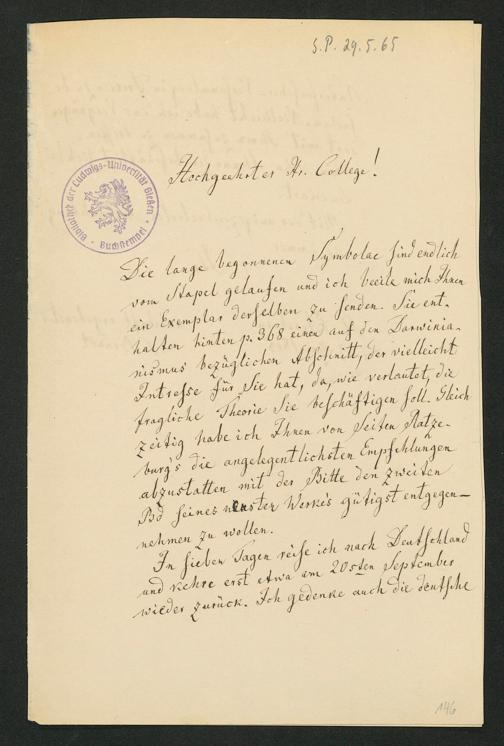 S.P. 29.5.65
Bibliothek der Ludwigs-Universität Gießen
Buchstempel
Hochgeehrter Hr. College!
Die lange begonnenen Symbolae sind endlich
vom Stapel gelaufen und ich beeile mich Ihnen
ein Exemplar derselben zu senden. Sie ent-
halten hinten p. 368 einen auf den Darwinia-
nismus bezüglichen Abschnitt, der vielleicht
Intresse für Sie hat, da, wie verlautet, die
fragliche Theorie Sie beschäftigen soll. Gleich
zeitig habe ich Ihnen von Seiten Ratze-
burgs die angelegentlichsten Empfehlungen
abzustatten mit der Bitte den zweiten
Bd seines neusten Werkes gütigst entgegen-
nehmen zu wollen.
In sieben Tagen reise ich nach Deutschland
und kehre erst etwa am 20sten September
wieder zurück. Ich gedenke auch die deutsche
146